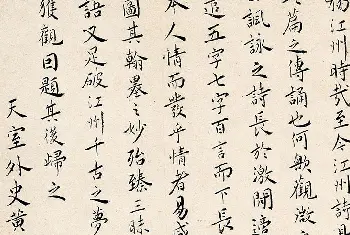 江州時哉至今江州詩
篇之傳誦也何歟觀微之
諷詠之詩長於激閒
五字七字百言而下長
本人情而發乎情者易
圖其翰墨之妙殆臻三昧
語又足破江州千古之夢
獲觀因題其後歸之
天室外史黄